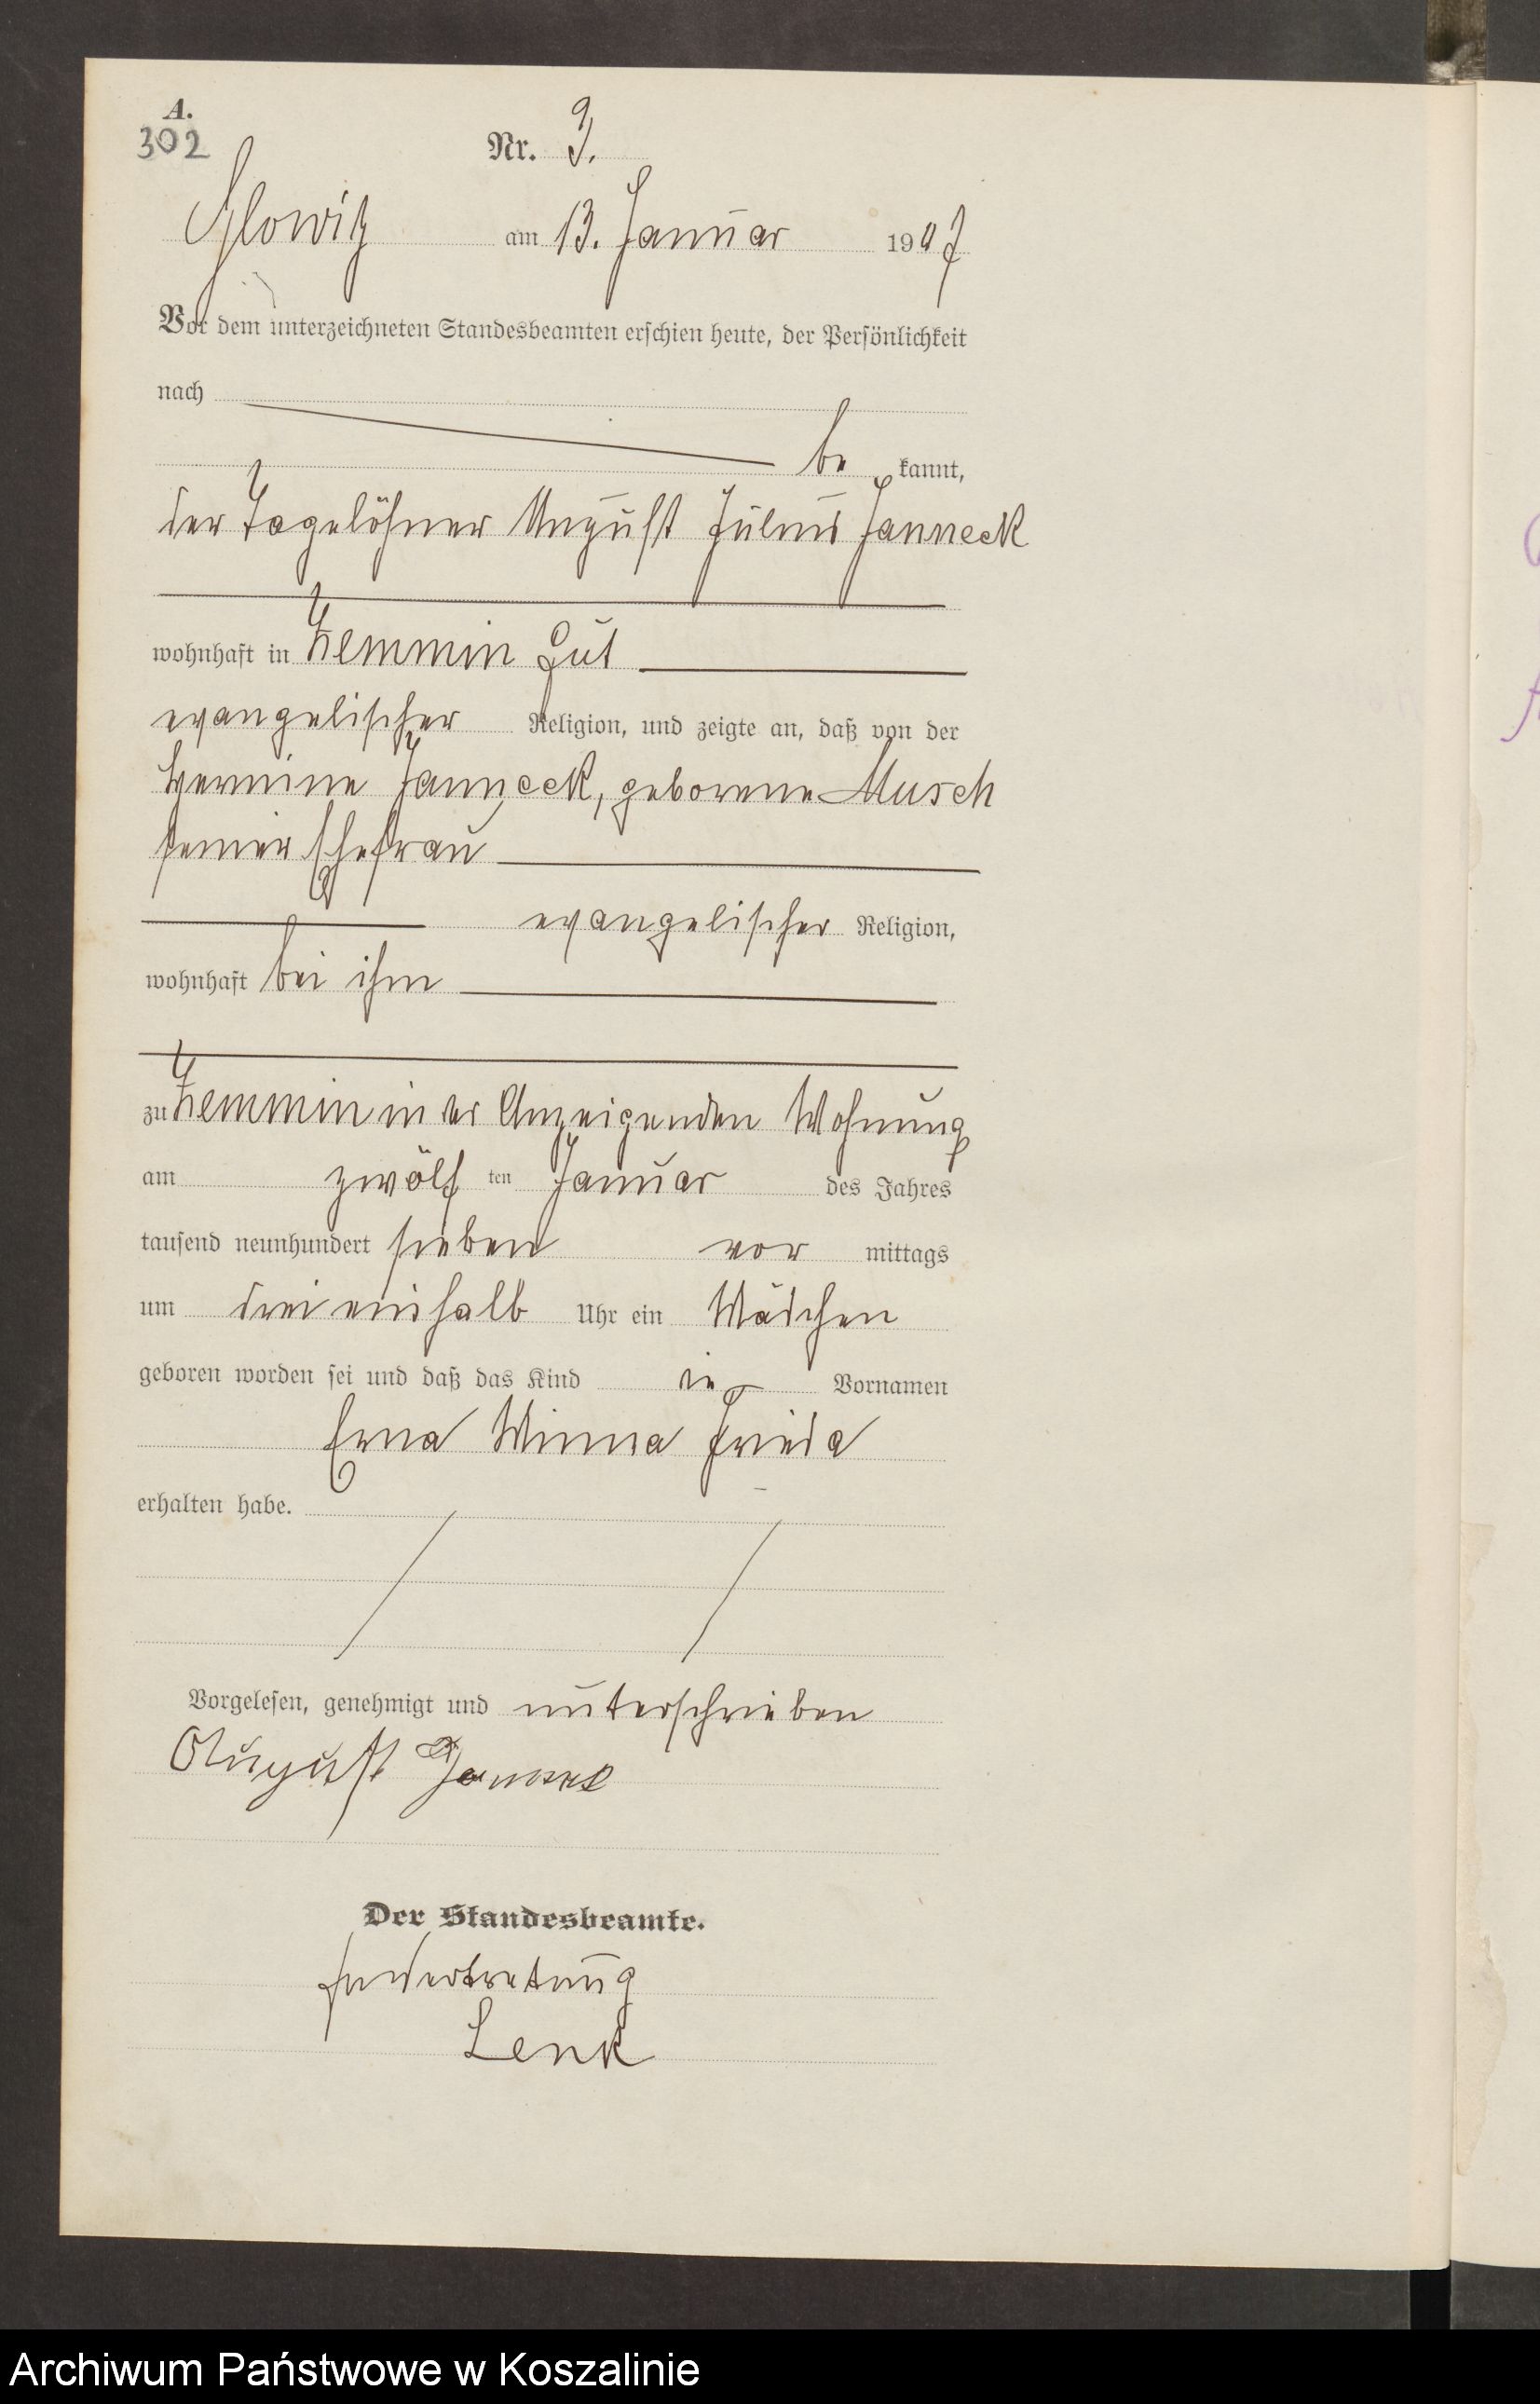 A.
302
Nr. 3.
Glowitz am 13. Januar 1907
Vor dem unterzeichneten Standesbeamten erschien heute, der Persönlichkeit
nach
be kannt,
der Tagelöhner August Julius Janneck
wohnhaft in Zemmin Gut
evangelischer Religion, und zeigte an, daß von der
Hermine Janneck, geborene Musch
seiner Ehefrau
evangelischer Religion,
wohnhaft bei ihm
zu Zemmin in der Anzeigenden Wohnung
am zwölf ten Januar des Jahres
tausend neunhundert sieben vor mittags
um drei einhalb Uhr ein Mädchen
geboren worden sei und daß das Kind die Vornamen
Erna Minna Frieda
erhalten habe.
Vorgelesen, genehmigt und unterschrieben
August Janneck
Der Standesbeamte.
In Vertretung
Lenk
Archiwum Państwowe w Koszalinie